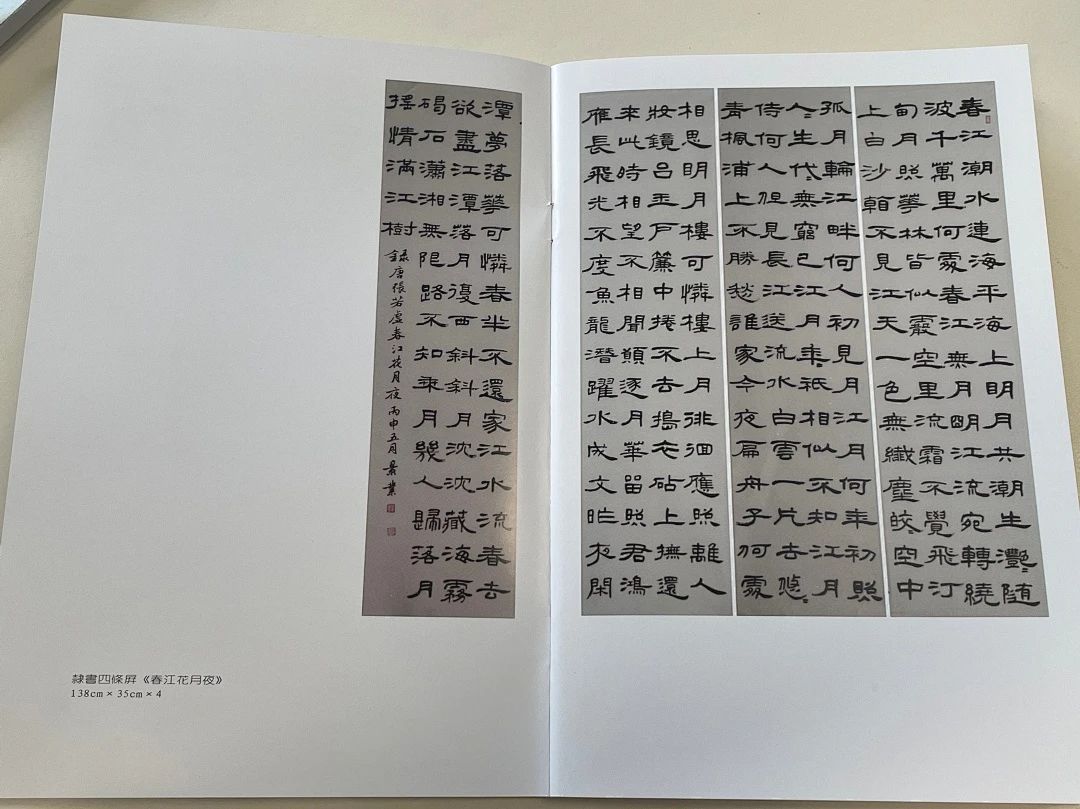 春江潮水連海平海上明月共潮生灩〻隨
波千萬里何處春江無月明江流宛轉繞
甸月照華林皆似霰空里流霜不覺飛汀
上白沙看不見江天一色無纖塵皎〻空中
孤月輪江畔何人初見月江月何年初照
人〻生代〻無窮已江月年〻祇相似不知江月
侍何人但見長江送流水白雲一片去悠〻
青楓浦上不勝愁誰家今夜扁舟子何處
相思明月樓可憐樓上月徘徊應照離人
妝鏡台玉戶簾中捲不去搗衣砧上撫還
來此時相望不相聞願逐月華留照君鴻
雁長飛光不度魚龍潛躍水成文昨夜閑
潭夢落華可憐春半不還家江水流春去
欲盡江潭落月復西斜斜月沈沈藏海霧
碣石瀟湘無限路不知乘月幾人歸落月
搖情滿江樹
錄唐張若虛春江花月夜丙申五月景業
隸書四條屏《春江花月夜》
138cm×35cm×4